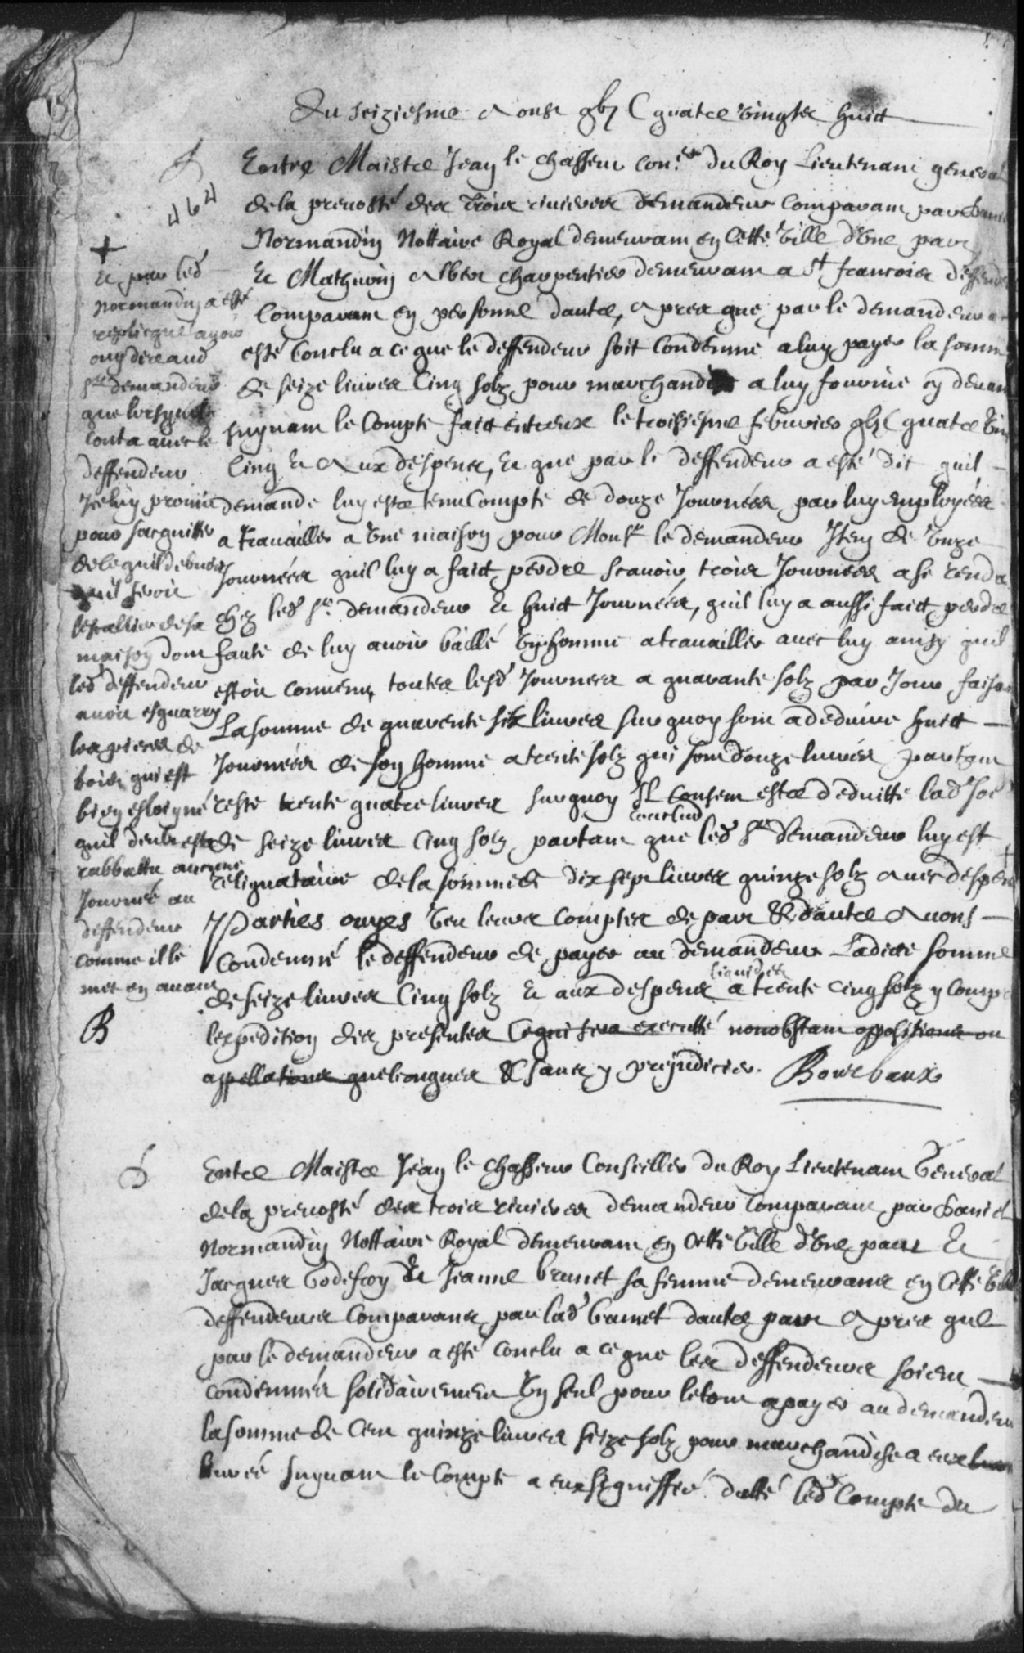 Du seiziesme Aoust gbj C quatre vingts huict
464
Entre Maistre Jean le Chasseur con.er du Roy Lieutenant general
de la prevosté des Trois rivieres demandeur Comparant par
Normandin Nottaire Royal demeurant en Cette Ville d'Une part
Et Mathurin charpentier demeurant a St francois deffend
Comparant en personne dautre, Apres que par le demandeur a
esté Conclu a ce que le deffendeur soit Condemné a luy payer la somme
de seize livres Cinq solz pour marchandise a luy fournie cy devant
suyvant le Compte faict entreux le troisiesme febvrier gbj C quatre Vin
Cinq Et Aux despens, Et que par le deffendeur a esté dit quil
demande luy estre tenu Compte de douze Journées par luy employées
a travailler a Une maison pour Monsr le demandeur Item de Unze
Journées quil luy a faict perdre scavoir trois Journées a se rendre
chez led Sr demandeur Et huict Journées, quil luy a aussi faict perdre
faute de luy avoir baillé Un homme a travailler avec luy ainsy quil
estoit convenu, toutes lesd Journees a quarante solz par Jour faisant
La somme de quarente six livres sur quoy sont a deduire huict
Journées de son homme a trente solz qui sont douze livres partant
reste trente quatre livres sur quoy Il consent estre deduitte lad soe
de seize livres Cinq solz partant conclud que led Sr demandeur luy est
reliquataire de la somme de dix sept livres quinze solz Avec despens
Parties ouyes Veu leurs comptes de part Et dautre Avons
Condemné le deffendeur de payer au demandeur Ladicte somme
de seize livres Cinq solz Et aux despens liquidés a trente cinq solz y Compris
lexpedition des presentes Ce qui sera executté nonobstant oppositions ou
appellations quelconques Et sans y prejudicier. Boucbaux
+
Et par led
Normandin a esté
replicqué avoir
ouy dire aud
Sr demandeur
que lorsquil
conta avec le
deffendeur
Il luy promit
pour sacquitter
de ce quil debvoit
quil feroit
lescallier de sa
maison dont
led deffendeur
avoit esquarry
les pieces de
bois qui est
bien esloigné
quil deub estre
rabbattu aucune
Journée au
deffendeur
comme il le
met en avant
B
Entre Maistre Jean le Chasseur Conseiller du Roy Lieutenant General
de la prevosté des trois rivieres demandeur Comparant par Daniel
Normandin Nottaire Royal demeurant en Cette Ville d'Une part Et
Jacques Godefroy Et Jeanne brunet sa femme demeurants en Cette Ville
deffendeurs Comparants par lad brunet dautre part Apres que
par le demandeur a esté conclu a ce que les deffendeurs soient
condemnés solidairement Un seul pour le tout a payer au demandeur
la somme de Cent quinze livres seize solz pour marchandise a eux
livrée suyvant le Compte a eux signiffié datté led Compte du